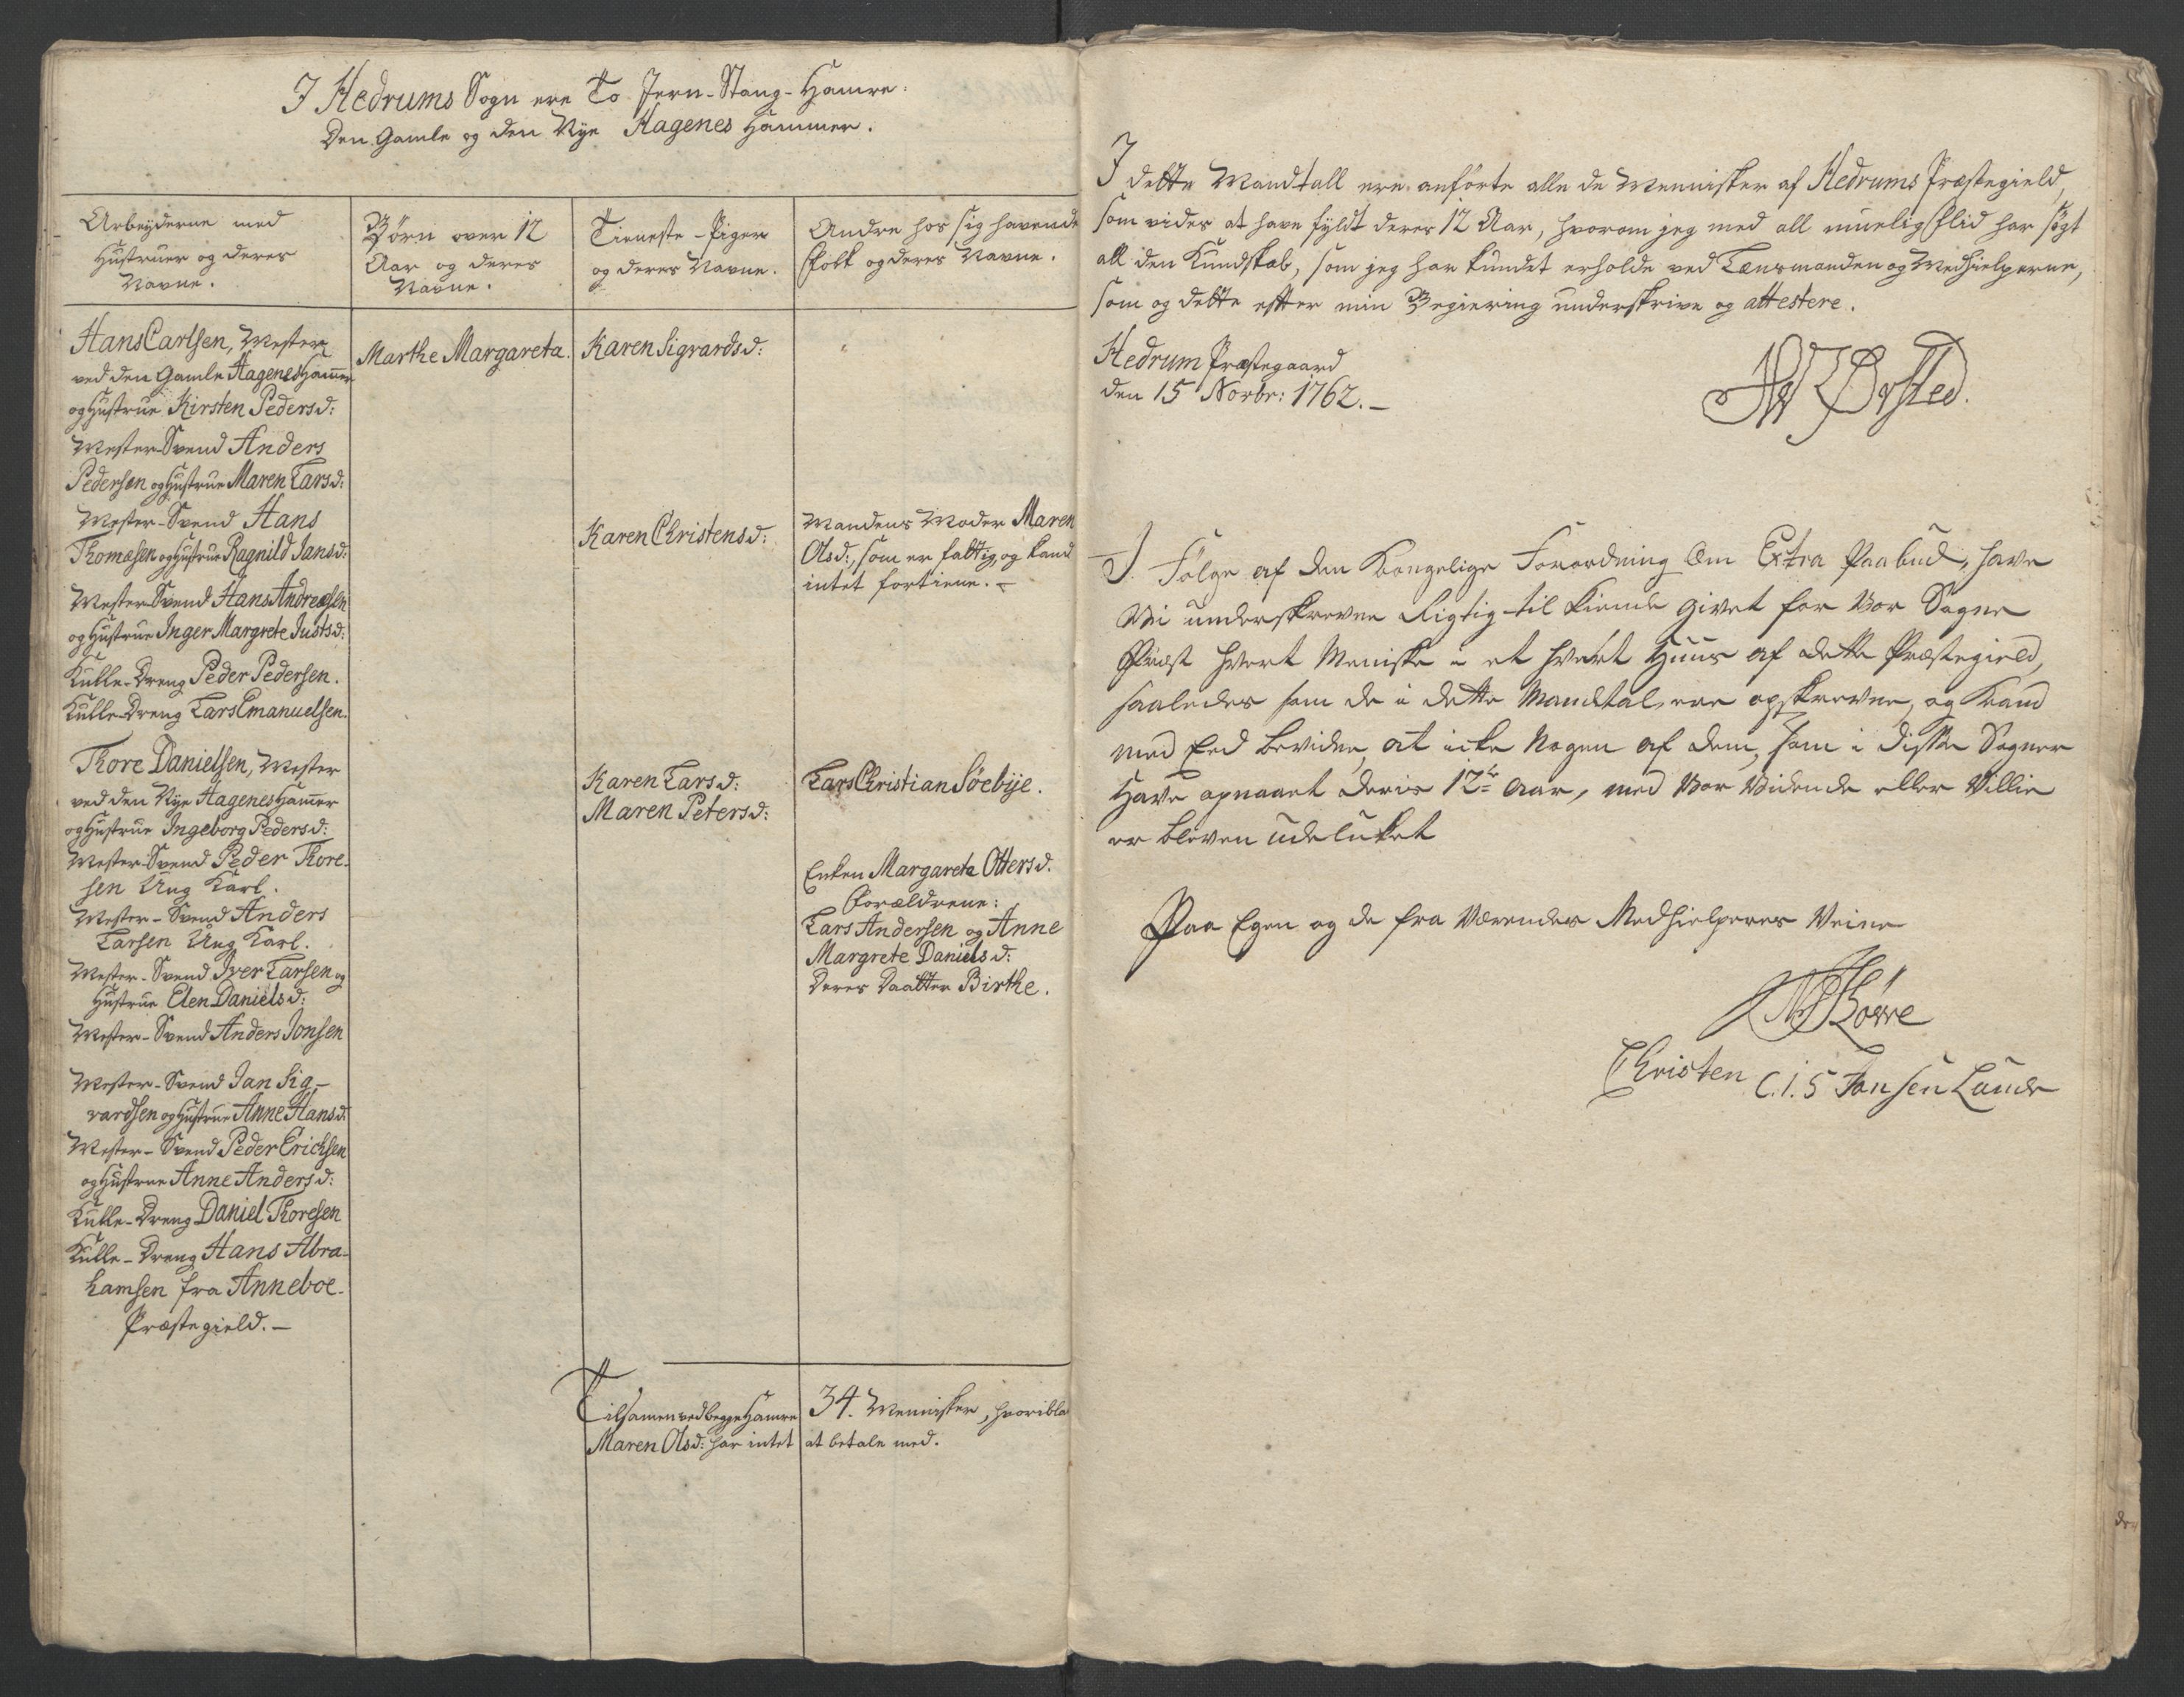 I Hedrums Sogn ere To Jern-Stang-Hamre:
Den Gamle og den Nye Hagenes Hammer.
Arbeyderne med
Hustruer og deres
Navne.
Børn over 12
Aar og deres
Navne.
Tieneste-Piger
og deres Navne.
Andre hos sig havende
Folk og deres Navne.
Hans Carlsen, Mester
ved den Gamle Hagenes Hamer
og Hustrue Kirsten Pedersd:
Marthe Margareta.
Karen Sigvardsd:
Mester-Svend Anders
Pedersen og Hustrue Maren Larsd:
Mester-Svend Hans
Thomæsen og Hustrue Ragnild Jansd:
Karen Christensd:
Mandens Moder Maren
Olsd:, som er fattig og kand
intet fortiene.
Mester Svend Hans Andreæsen
og Hustrue Inger Margrete Justsd:
Kulle-Dreng Peder Pedersen.
Kulle-Dreng Lars Emanuelsen.
Thore Danielsen, Mester
ved den Nye Hagenes Hamer
og Hustrue Ingeborg Pedersd:
Karen Larsd:
Maren Petersd:
Lars Christian Søebye.
Mester-Svend Peder Thore-
sen Ung Karl.
Mester-Svend Anders
Larsen Ung Karl.
Enken Margareta Ottersd.
Forældrene:
Lars Andersen og Anne
Margrete Danielsd:
Deres Daatter Birthe.
Mester-Svend Iver Larsen og
Hustrue Elen Danielsd:
Mester-Svend Anders Jonsen
Mester-Svend Jan Sig-
vardsen og Hustrue Anne Hansd.
Mester-Svend Peder Erichsen
og Hustrue Anne Andersd:
Kulle-Dreng Daniel Thoresen
Kulle-Dreng Hans Abra-
hamsen fra Anneboe-
Præstegield.-
Tilsamen ved begge Hamre 34. Mennisker, hvoribla
Maren Olsd: har intet at betale med.
I dette Mandtall ere anførte alle de Mennisker af Hedrums Præstegield,
som vides at have fyldt deres 12 Aar, hvorom jeg med all muelig Flid har søgt
all den Kundskab, som jeg har kundet erholde ved Lensmanden og Medhielperne,
som og dette efter min Begiering underskrive og attestere.
Hedrum Præstegaard
den 15 Novbr: 1762.-
Ørsted.
I Følge af den Kongelige Forordning Om Extra Paabud, have
Wi underskrevne Rigtig til kiende givet for Vor Sogne
Præst hvert Meniske i et hvert Huus af dette Præstegield,
saaledes som de i dette Mandtal ere opskrevne, og Kand
med Eed bevidne, at icke Nogen af dem, som i disse Sogner
Have opnaaet deris 12te Aar, med Vor Vidende eller Villie
er bleven udeluket
Paa Egen og de fra Værendes Medhielperes Veine
Christen C.I.S Jansen Lunde